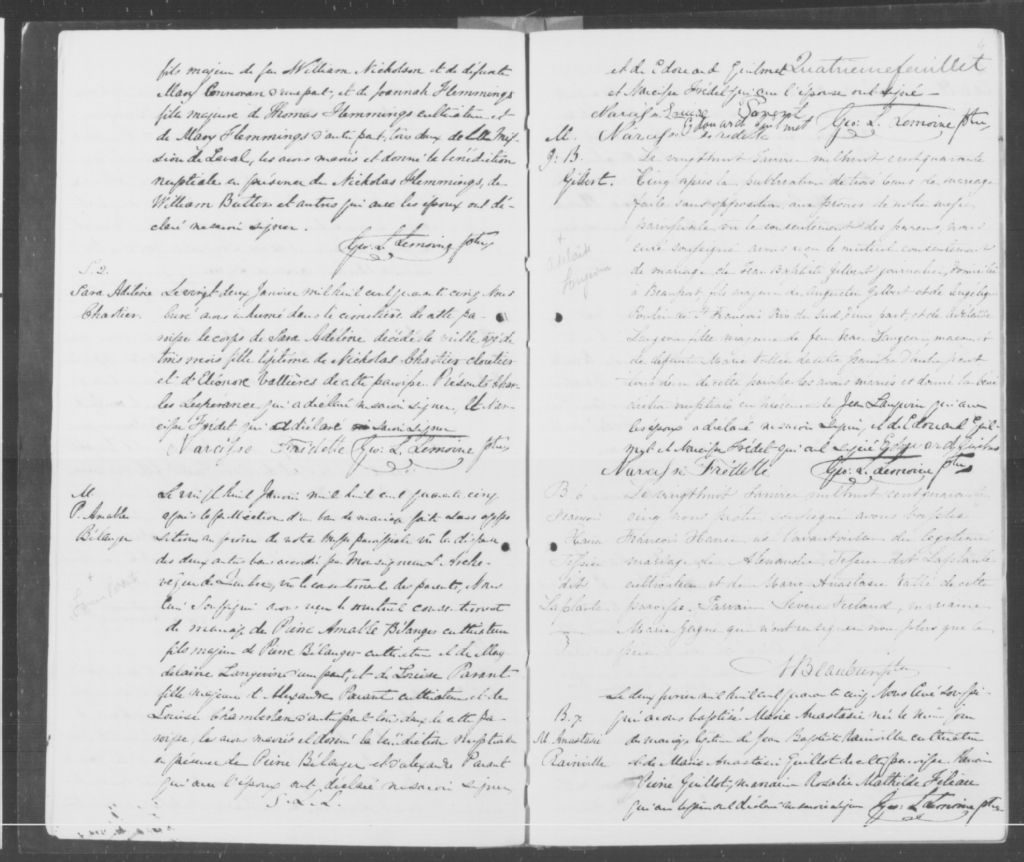 fils majeur de feu William Nicholson et de défunte
Mary Connovan d'une part, et de Joannah Hemmings
fille majeure de Thomas Hemmings cultivateur et
de Mary Hemmings d'autre part, tous deux de la Mis-
sion de Laval, les avons mariés et donné la bénédiction
nuptiale en présence de Nickolas Hemmings, de
William Button et autres qui avec les époux ont dé-
claré ne savoir signer.
Geo. L. Lemoine Ptre
S. 2.
Sara Adeline
Chartier.
Le vingt deux Janvier mil huit cent quarante cinq Nous
Curé avons inhumé dans le cimetière de cette pa-
roisse le corps de Sara Adeline décédée la veille, agée de
trois mois fille légitime de Nickolas Chartier cloutier
et d'Eléonore Vallières de cette paroisse. Présents Char-
les Lespérance qui a déclaré ne savoir signer, et Nar-
cisse Fredet qui a déclaré savoir signer
Narcisse Frédette Geo. L. Lemoine Ptre
M.
P. Amable
Bélanger
Le vingt huit Janvier mil huit cent quarante cinq
après la publication d'un ban de mariage faite sans oppo
sition au prône de notre messe paroissiale vu la dispense
des deux autres bans accordée par Monseigneur L'Arche-
vêque de Québec, vu le consentement des parents, Nous
Curé soussigné avons reçu le mutuel consentement
de mariage de Pierre Amable Bélanger cultivateur
fils majeur de Pierre Bélanger cultivateur et de Mag
delaine Langevin d'une part, et de Louise Parant
fille majeure d'Alexandre Parant cultivateur et de
Louise Chamberlan d'autre part tous deux de cette pa-
roisse, les avons mariés et donné la bénédiction nuptiale
en présence de Pierre Bélanger et d'Alexandre Parant
qui avec l'époux ont déclaré ne savoir signer
G. L. L.
Quatrieme feuillet
et de Edouard Guilmet
et Narcisse Frédet qui avec l'épouse ont signé
Louise Parent
Edouard Guilmet
Narcisse Frédette Geo. L. Lemoine Ptre
M.
J. B.
Gilbert.
Le vingt huit Janvier mil huit cent quarante
Cinq après la publication de trois bans de mariage
faite sans opposition aux prônes de notre messe
paroissiale vu le consentement des parens, nous
curé soussigné avons reçu le mutuel consentement
de mariage de Jean Baptiste Gilbert journalier, domicilié
à Beauport, fils majeur de Augustin Gilbert et de Angélique
de St François Riv. du Sud, d'une part, et de Adélaïde
Langevin fille majeure de feu Jean Langevin
de défunte Marie Vallée de cette paroisse d'autre part
les avons mariés et donné la béné
diction nuptiale en présence de Jean Langevin qui avec
les époux a déclaré ne savoir signer, et de Edouard Guil
met et Narcisse Frédet qui ont signé Edouard Guilmet
Narcisse Frédette Geo. L. Lemoine Ptre
B. 6
François
Xavier
Tessier
dit
Laplante
Le vingt huit Janvier mil huit cent quarante
cinq nous prêtre soussigné avons baptisé
François Xavier né l'avant-veille du légitime
mariage de Alexandre Tessier dit Laplante
cultivateur et de Marie Anastasie Vallée de cette
paroisse. Parrain Sévère marraine
Marie Gagné qui n'ont su signer non plus que le
père
B. 7
M. Anastasie
Rainville
Le deux février mil huit cent quarante cinq Nous Curé soussi-
gné avons baptisé Marie Anastasie née le même jour
du mariage légitime de Jean Baptiste Rainville cultivateur
et de Marie Anastasie Guillot de cette paroisse Parrain
Pierre Guillot, marraine Rosalie Mathilde
qui avec le père ont déclaré ne savoir signer Geo. L. Lemoine Ptre